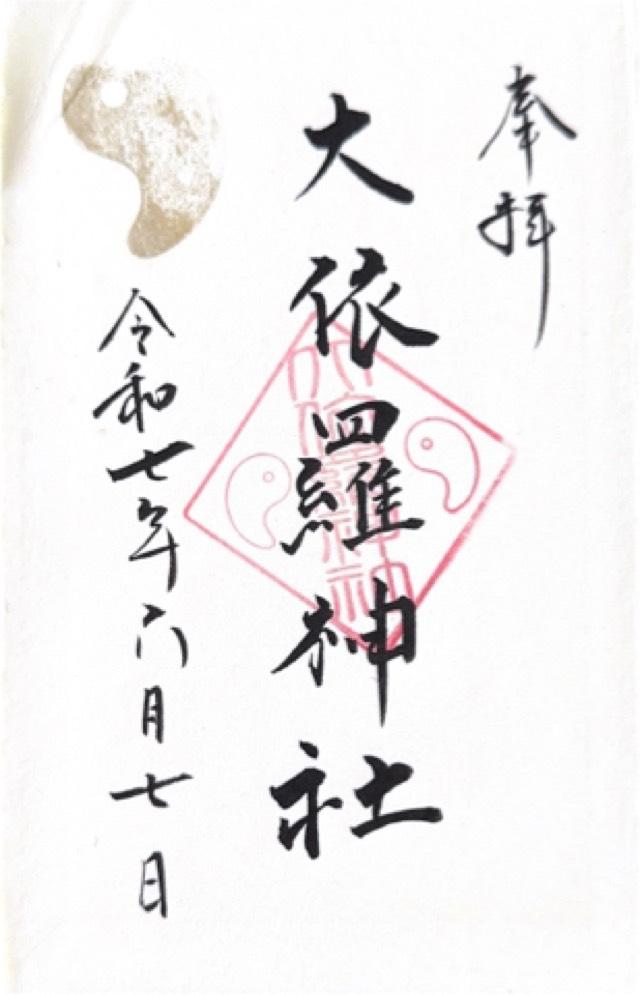 奉拝
大依羅神社
令和七年六月七日